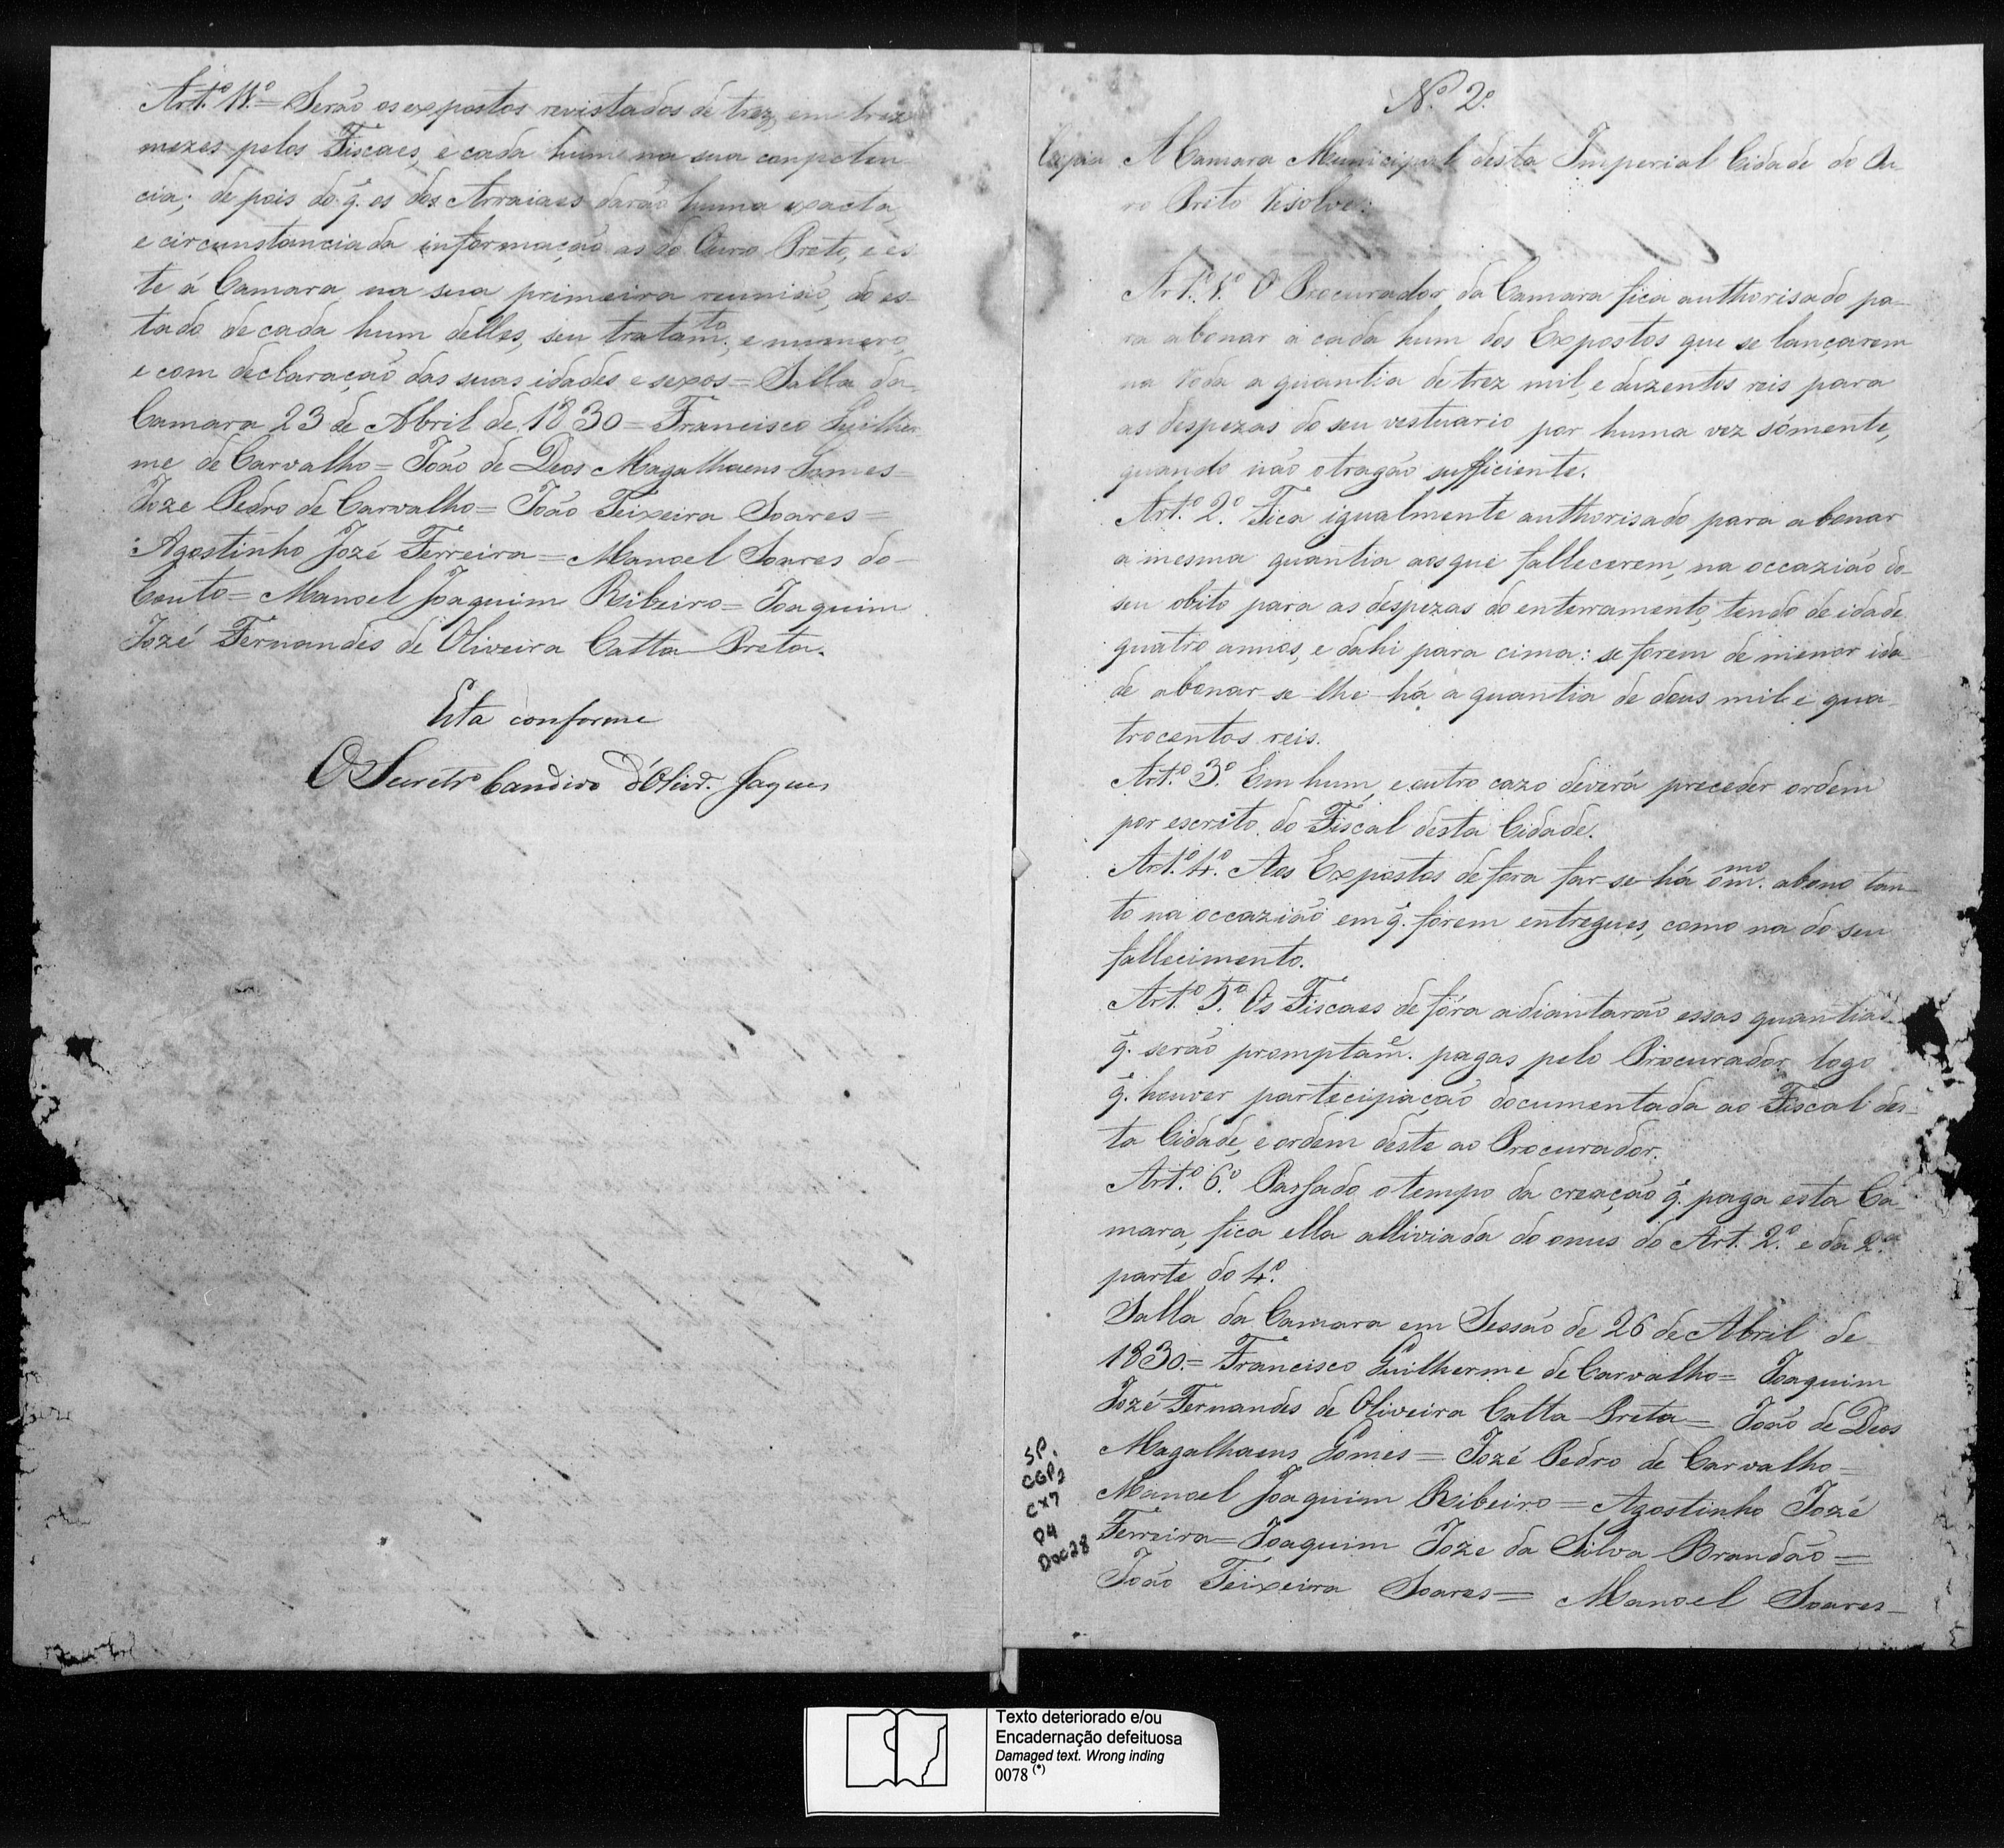 Art.º 11.º = Serão os expostos revistados de trez, em trez
mezes pelos Fiscaes, e cada hum na sua conpeten
cia; depois do q̃. os dos Arraiaes darão huma exacta,
e circunstanciada informação as do Ouro Preto, e es
te á Camara na sua primeira reunião, do es-
tado de cada hum delles, seu tratam.to, e numero,
e com declaração das suas idades e sexos = Salla da
Camara 23 de Abril de 1830 = Francisco Guilher
me de Carvalho = João de Deos Magalhaens Gomes =
Joze Pedro de Carvalho = João Teixeira Soares =
Agostinho Jozé Ferreira = Manoel Soares do
Couto = Manoel Joaquim Ribeiro = Joaquim
Jozé Fernandes de Oliveira Catta-Preta.
Esta conforme
O Secretr.o Candido d'Olivr.ª Jaques
N.º 2.º
Copia A Camara Municipal desta Imperial Cidade do Ou-
ro Preto Resolve:
Art.º 1.º O Procurador da Camara fica authorisado pa-
ra abonar a cada hum dos Expostos que se lançarem
na Roda a quantia de trez mil, e duzentos reis para
as despezas do seu vestuario por huma vez sómente,
quando não o tragão sufficiente.
Art.º 2.º Fica igualmente authorisado para abonar
a mesma quantia aos que fallecerem, na occazião do
seu obito para as despezas do enterramento, tendo de idade
quatro annos, e dahi para cima: se forem de menor ida-
de abonar-se-lhe-há a quantia de dous mil e qua-
trocentos reis.
Art.º 3.º Em hum, e outro cazo deverá preceder ordem
por escrito do Fiscal desta Cidade.
Art.º 4.º Aos Expostos de fora far-se-há o m.mo abono tan-
to na occazião em q̃. forem entregues, como na do seu
fallecimento.
Art.º 5.º Os Fiscaes de fóra adiantarão essas quantias
q̃. serão promptam̃. pagas pelo Procurador logo
q̃. houver participação documentada ao Fiscal des-
ta Cidade, e ordem deste ao Procurador.
Art.º 6.º Passado o tempo da creação q̃. paga esta Ca-
mara, fica ella alliviada do onus do Art. 2.º e da 2.ª
parte do 4.º
Salla da Camara em Sessão de 26 de Abril de
1830. = Francisco Guilherme de Carvalho = Joaquim
Jozé Fernandes de Oliveira Catta-Preta = João de Deos
Magalhaens Gomes = Jozé Pedro de Carvalho =
Manoel Joaquim Ribeiro = Agostinho Jozé
Ferreira = Joaquim Joze da Silva Brandão =
João Teixeira Soares = Manoel Soares
SP.
CGP2
CX7
P4
Doc28
Texto deteriorado e/ou
Encadernação defeituosa
Damaged text. Wrong inding
0078 (*)